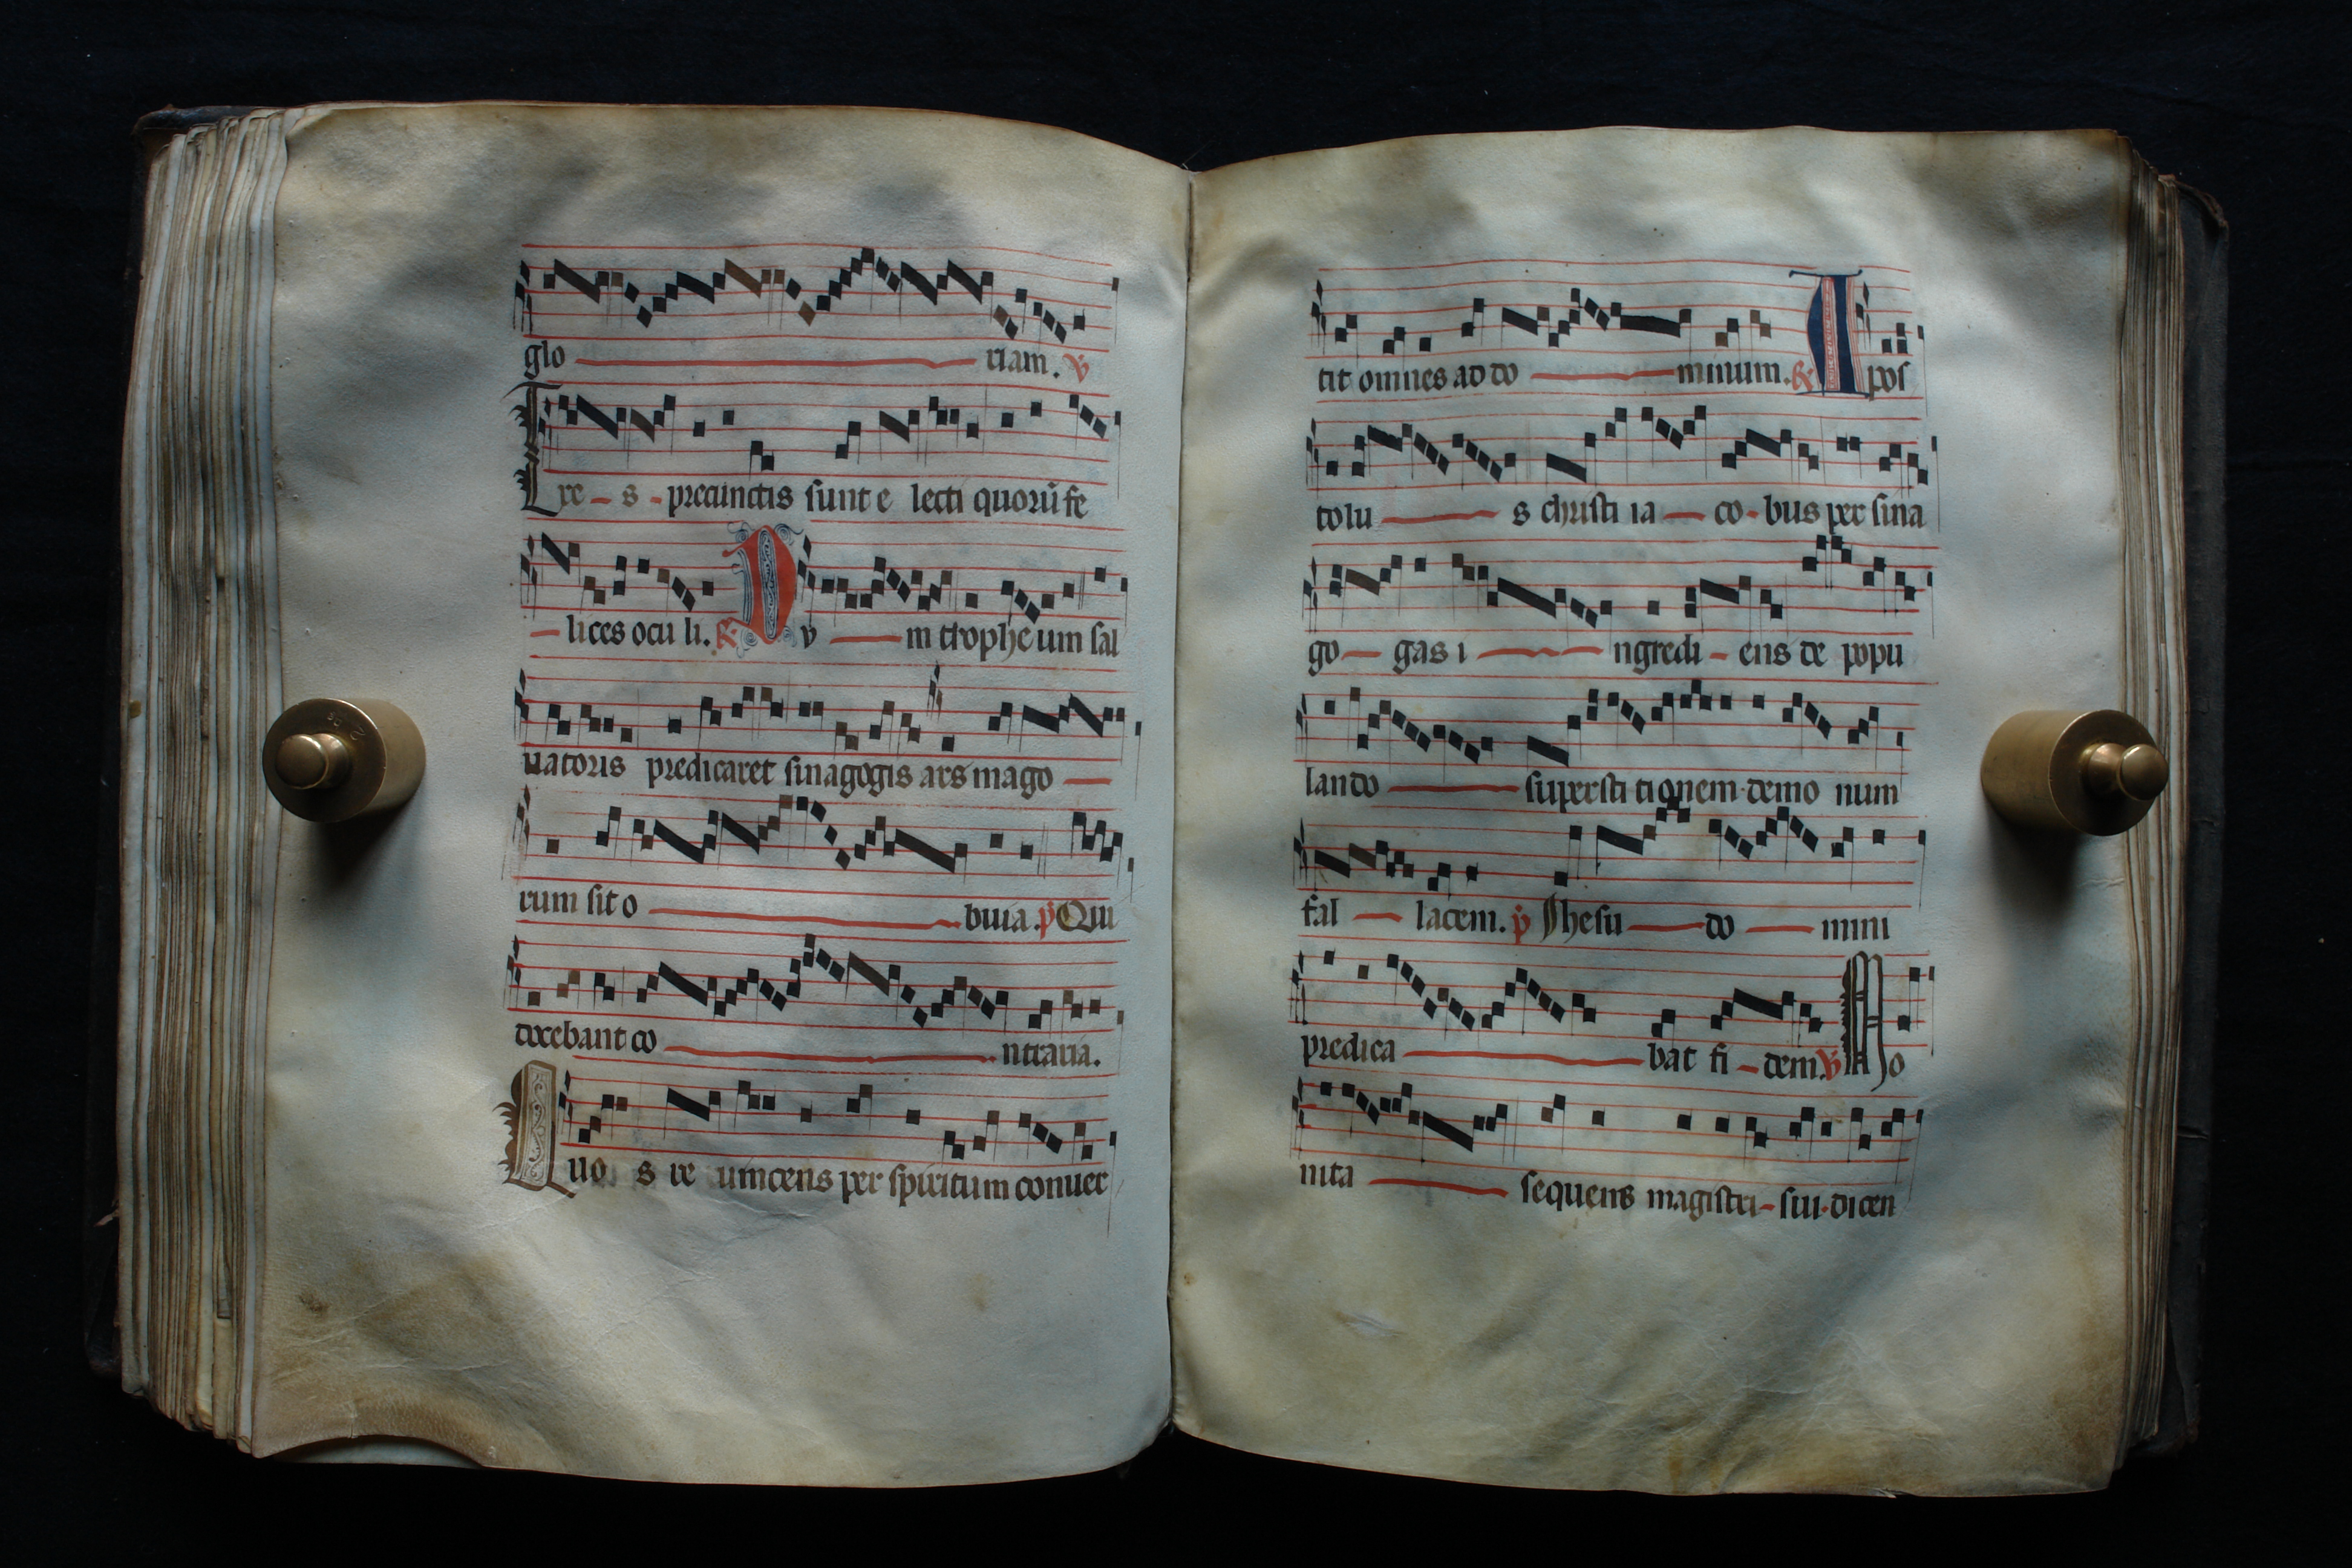 glo riam. ℣
Tre s precunctis sunt e lecti quorū fe
lices ocu li. ℟ Dv m tropheum sal
uatoris predicaret sinagogis ars mago
rum sit o buia. p̄ Qui
docebant co ntraria.
Quo s re uincens per spiritum conuer
tit omnes ad do minum. ℟ Apos
tolu s christi ia co bus per sina
go gas i ngredi ens de popu
lando supersti tionem demo num
fal lacem. p̄ Jhesu do mini
predica bat fi dem. ℣ Mo
nita sequens magistri sui dicen